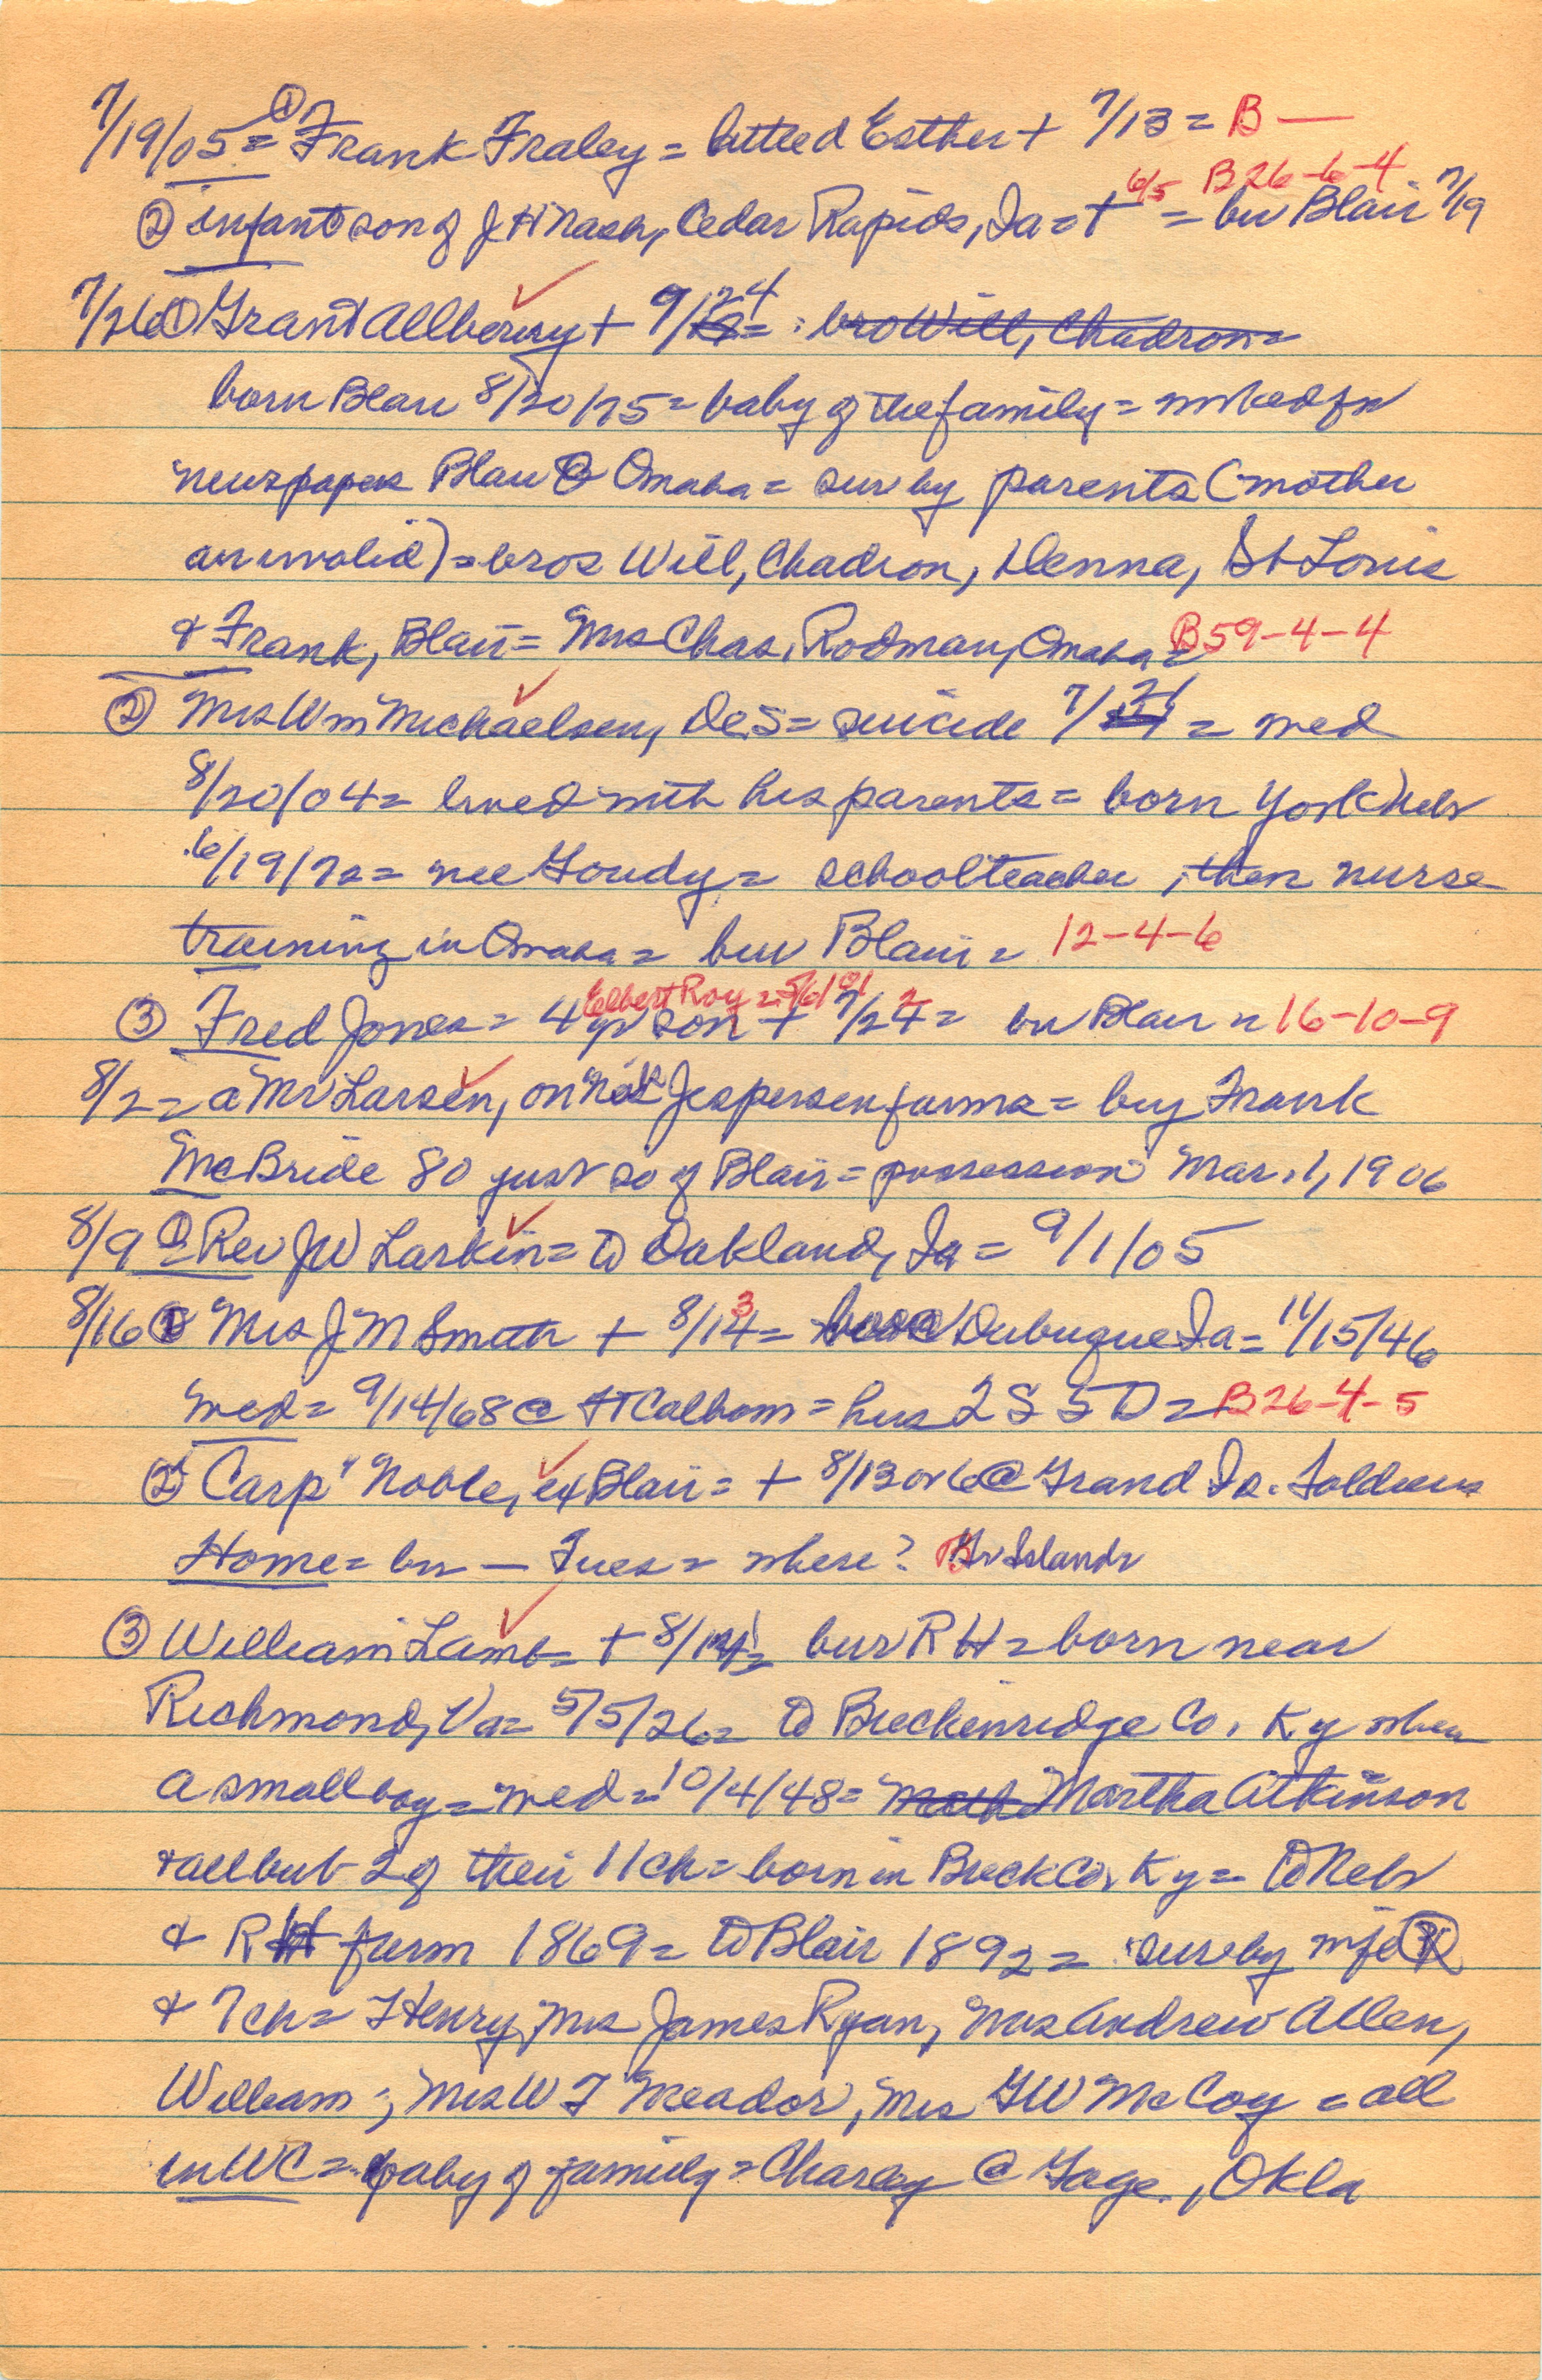 7/19/05 = ① Frank Fraley = Esther + 7/13 = B —
② infant son of J H Nash, Cedar Rapids, Ia = + 6/5 = bur Blair 7/19 B26-6-4
7/26 ① Grant Allberry + 9/24 = bro Will, Chadron =
born Blair 8/20/75 = baby of the family = worked for
newspapers Blair & Omaha = sur by parents (mother
an invalid) = bros Will, Chadron, Denna, St Louis
& Frank, Blair = Mrs Chas. Rodman, Omaha = B59-4-4
② Mrs Wm Michaelsen, DeS = suicide 7/21 = med
8/20/04 = lived with his parents = born York Nebr
6/19/72 = nee Goudy = schoolteacher, then nurse
training in Omaha = bur Blair = 12-4-6
Elbert Roy = 5/6/01
③ Fred Jones = 4 yr son + 7/22 = bur Blair = 16-10-9
8/2 = a Mr Larsen, on Jespersen farms = buy Frank
McBride 80 just so of Blair = possession Mar. 1, 1906
8/9 ① = Rev J W Larkin = to Oakland, Ia = 9/1/05
8/16 ① Mrs J M Smith + 8/13 = Dubuque Ia = 11/15/46
med = 9/14/68 @ Ft Calhoun = hus 2S 5D = B26-4-5
② "Carp" Noble, ex Blair = + 8/13 or 6 @ Grand Is. Soldiers
Home = bur — Tues = where? Gr Island
③ William Lamb = + 8/11 = bur RH = born near
Richmond, Va = 5/5/26 = to Breckenridge Co, Ky when
a small boy = med = 10/4/48 = Martha Atkinson
& all but 2 of their 11 ch = born in Breck Co, Ky = to Nebr
& RH farm 1869 = to Blair 1892 = sur by wife
& 7 ch = Henry, Mrs James Ryan, Mrs Andrew Allen,
William, Mrs W F Meador, Mrs G W McCoy = all
in WC = baby of family = Charley @ Gage, Okla